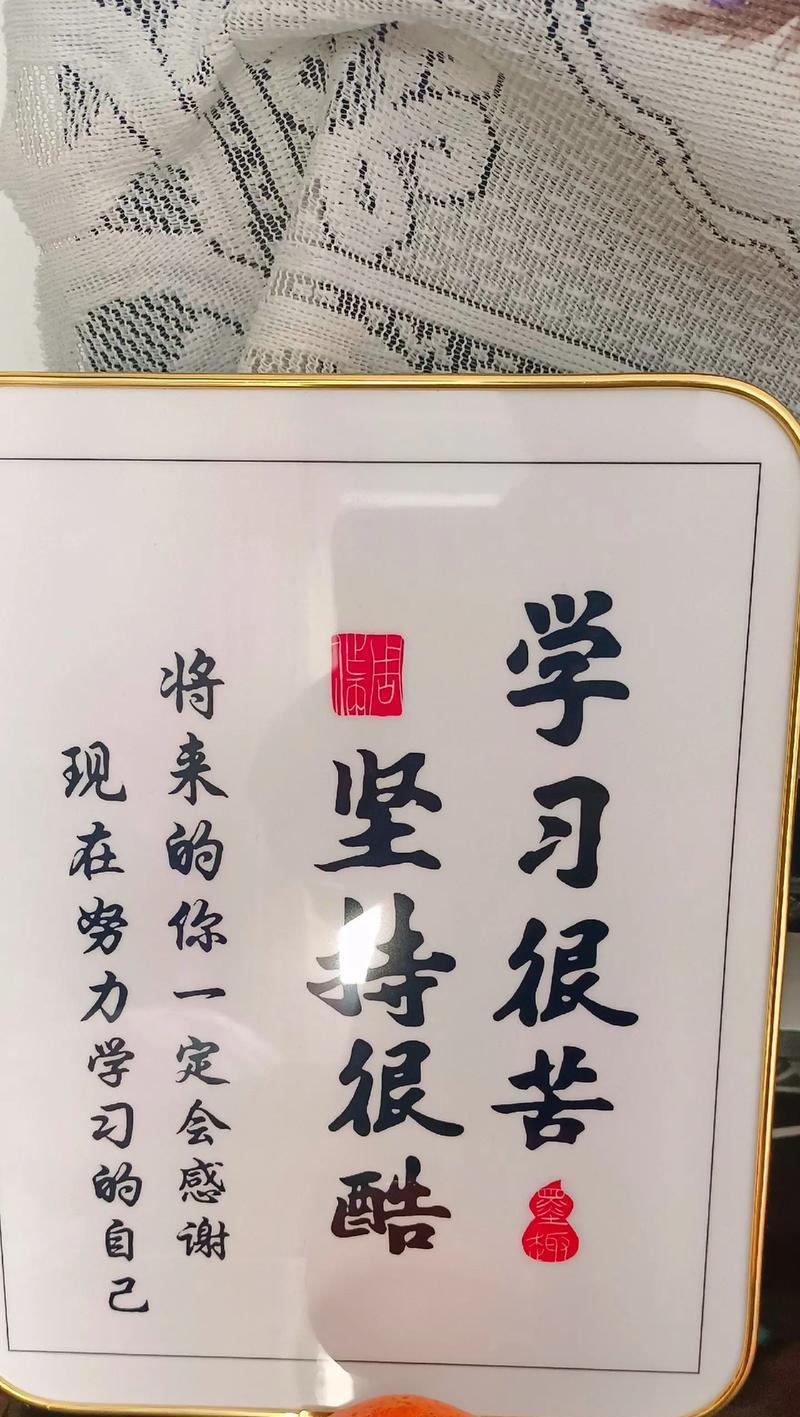 学习很苦
墨趣
坚持很酷
将来的你一定会感谢
现在努力学习的自己